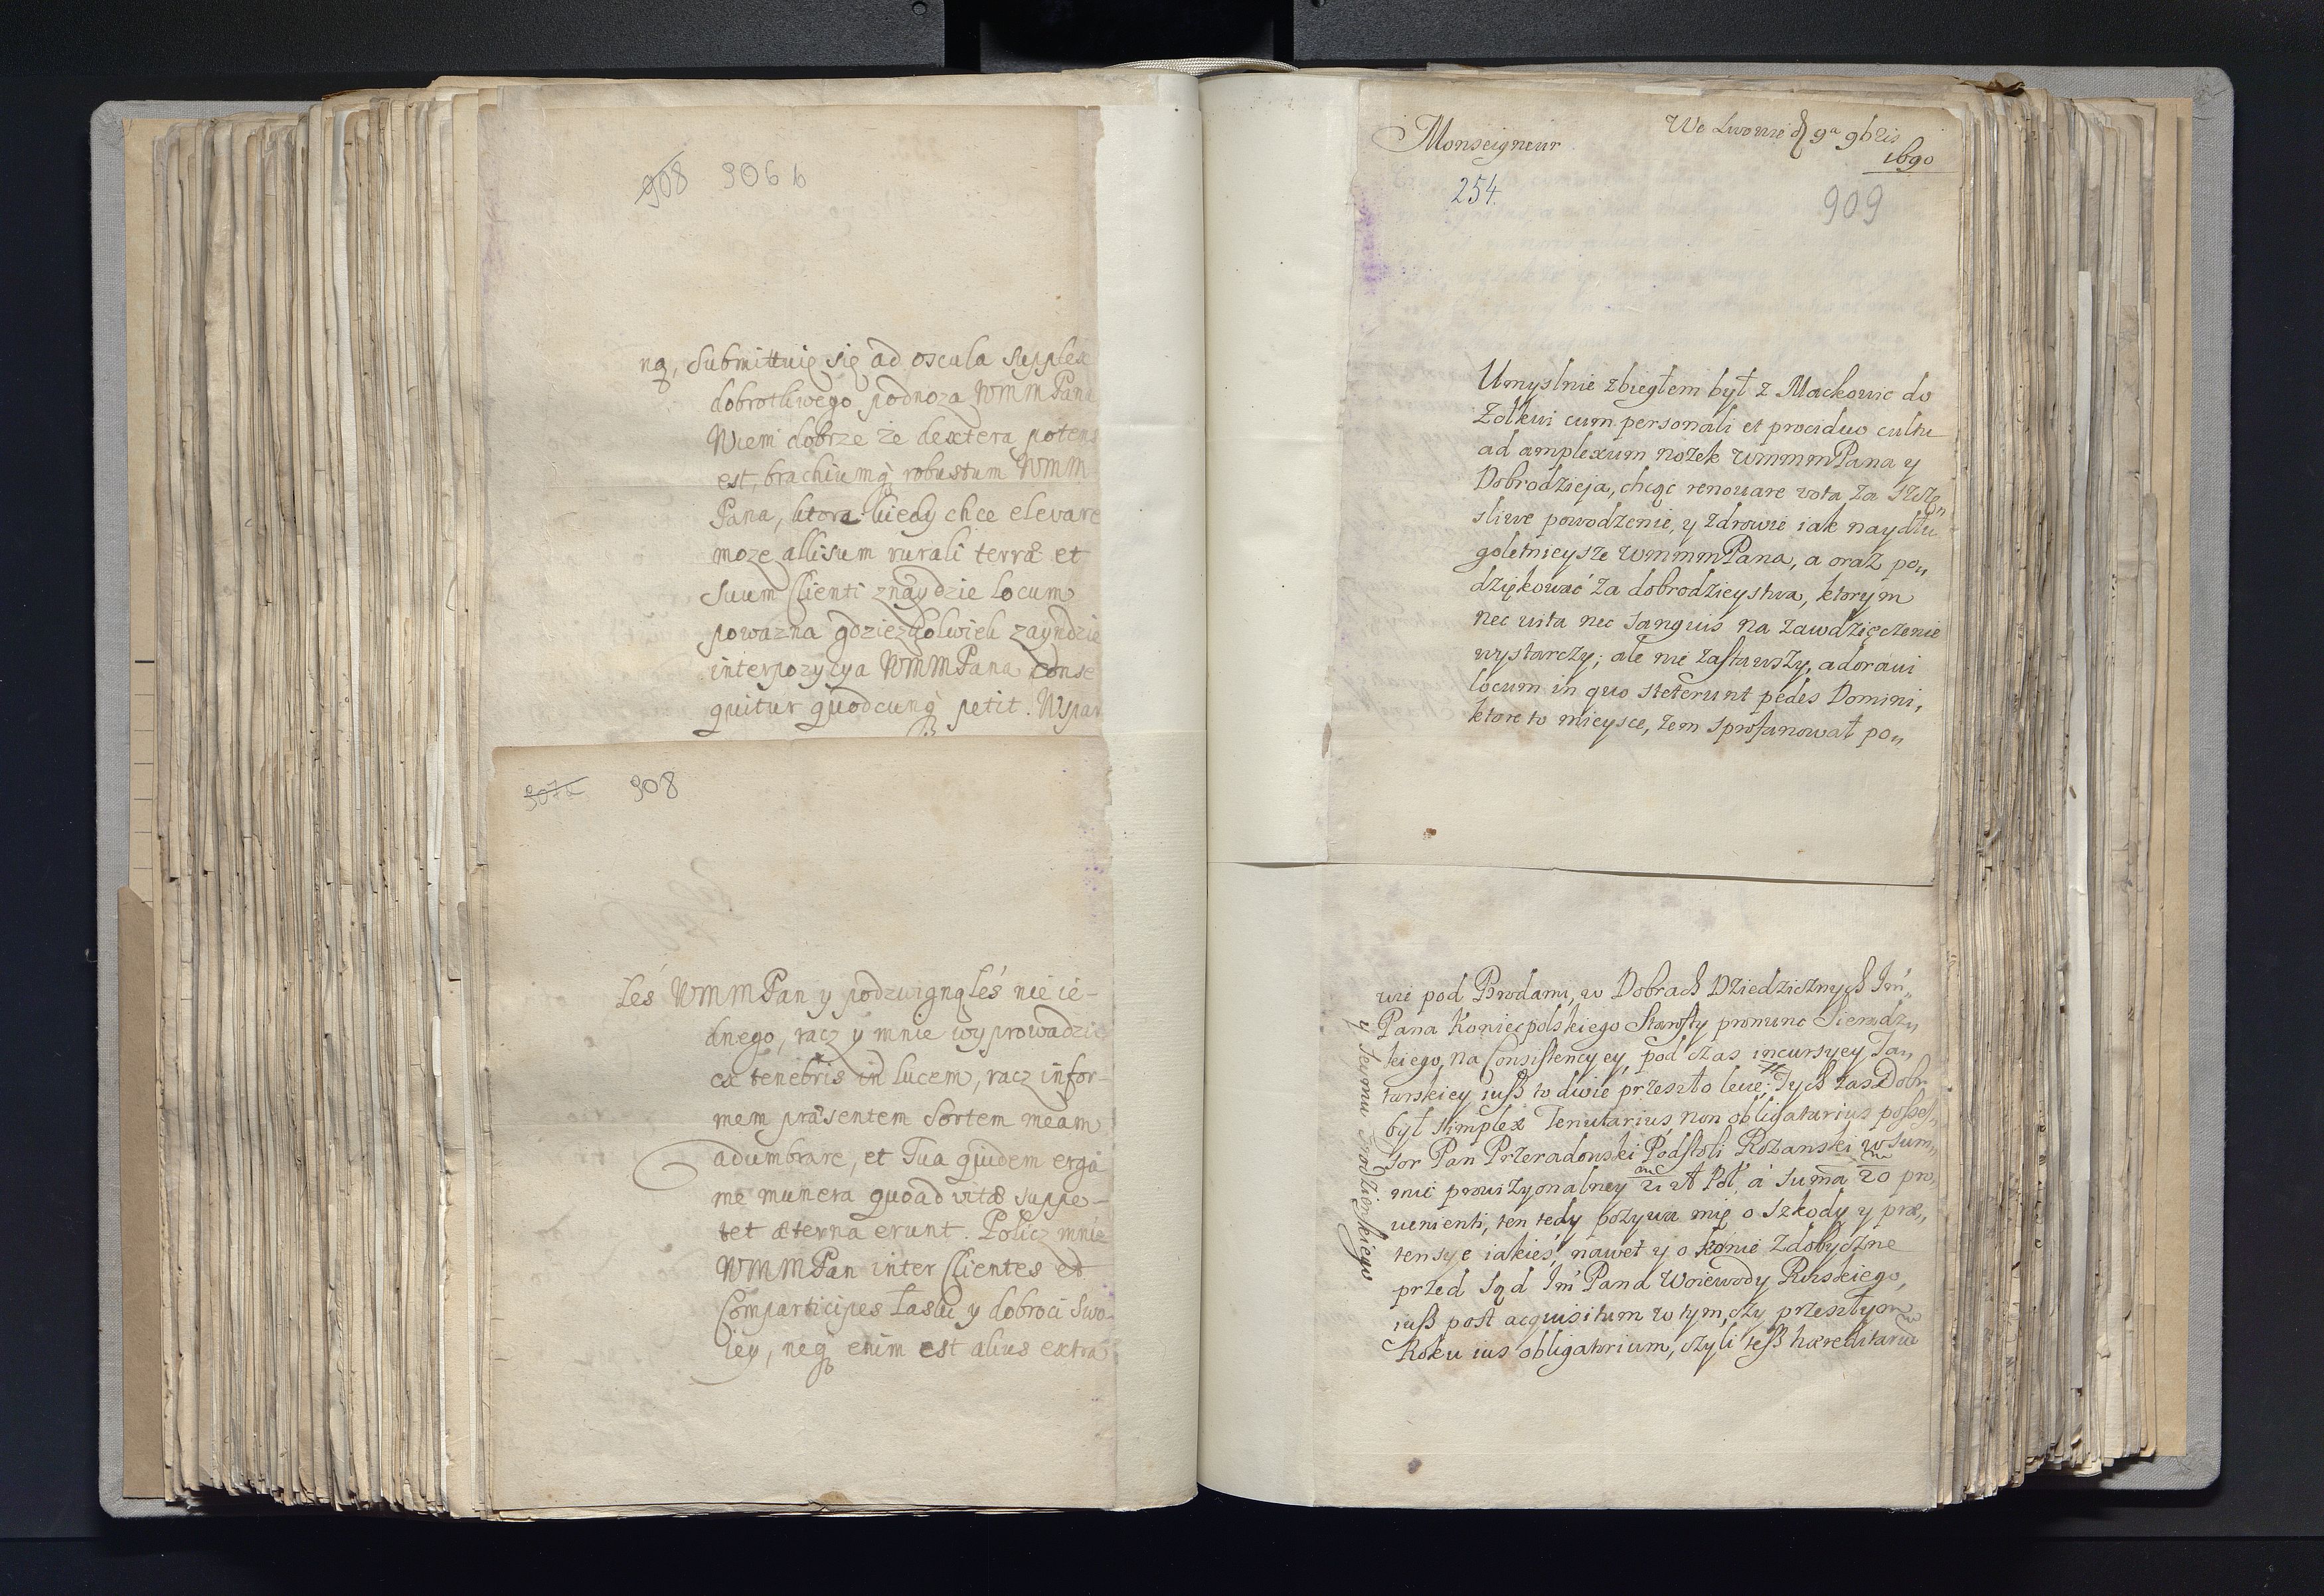 908 906 b
ną, Submittuię się ad oscula supplex
dobrotliwego podnoza WMMPana
Wiem dobrze że dextera potens
est, brachiumq robustum WMM
Pana, ktora kiedy chce elevare
może allisum rurali terræ et
suum Clienti znaydzie Locum
powazna gdziezkolwiek zayndzie
interpozycya WMMPana conse
quitur quodcunq petit. Wspar
907a 908
łeś WMMPan y podzwignąłeś nie ie-
dnego, racz y mnie wyprowadzić
ex tenebris in lucem, racz infor-
mem præsentem Sortem meam
adumbrare, et Tua quidem erga
me munera quoad vitæ suppe-
tet æterna erunt. Policz mnie
WMMPan inter Clientes et
Comparticipes łaski y dobroci Swo-
iey, neq enim est alius extra
Monseigneur
We Lwowie d 9a 9bris
1690
254.
909
Umyslnie zbiegłem był z Mackowic do
Zołkwi cum personali et prociduo cultu
ad amplexum nożek WmmmPana y
Dobrodzieja, chcąc renouare vota za szczę
sliwe powodzenie, y zdrowie iak naydłu
goletnieysze WmmmPana, a oraz po„
dziękować za dobrodzieystwa, ktorym
nec vita nec sanguis na zawdzięczenie
wystarczy; ale nie zastawszy, adoraui
locum in quo steterunt pedes Domini,
ktore to mieysce, żem sprofanował po„
wie pod Brodami, w Dobrach Dziedzicznych Im„
Pana Koniecpolskiego Starosty pronunc Sieradz„
kiego, na Consistencyey, pod czas incursyey Ta„
tarskiey iuß to dwie przeszło lecie; Tych zas Dobr
był simplex Tenutarius non obligatorius posses„
sor Pan Przeradowski Podstoli Rożanski w sum„
mie prowizyonalney 21 A Pol, à suma 20 pro„
uenienti, ten tedy pozywa mię o szkody y præ„
tensye iakieś, nawet y o konie zdobyczne
przed Sąd Im Pana Woiewody Ruskiego,
iuß post acquisitum w tym, czy przeszłym
Roku ius obligatorium, czyli teß hæreditariu